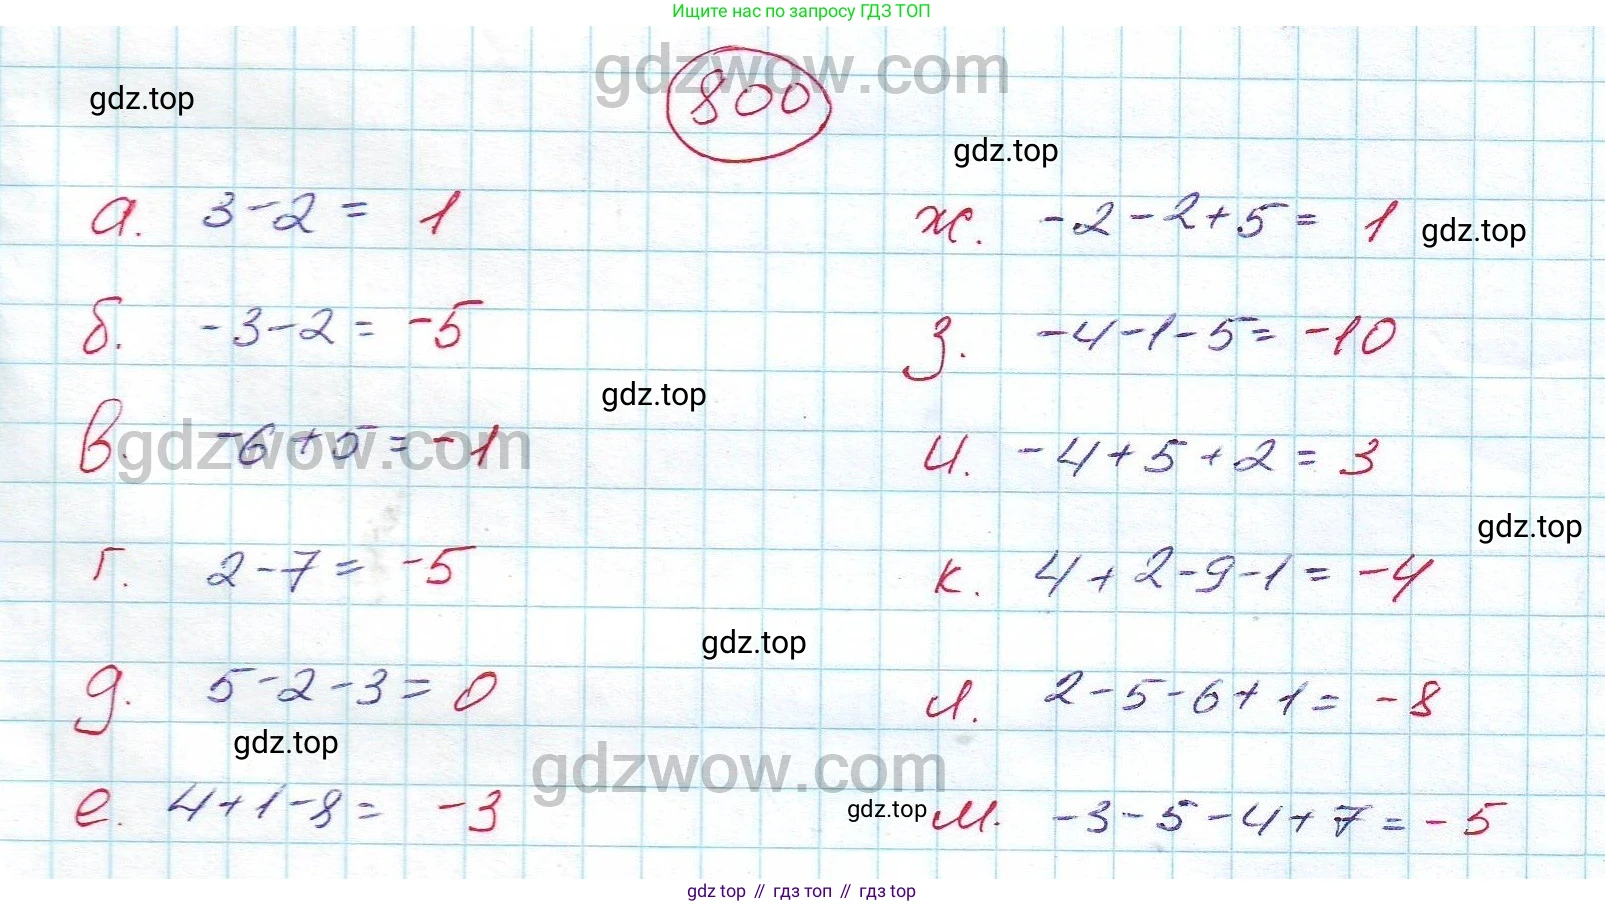 Ищите нас по запросу ГДЗ ТОП
gdzwow.com
800
gdz.top
gdz.top
а. 3-2= 1
ж. -2-2+5= 1
gdz.top
б. -3-2= -5
з. -4-1-5= -10
gdz.top
в. -6+5= -1
gdzwow.com
и. -4+5+2= 3
gdz.top
г. 2-7= -5
к. 4+2-9-1= -4
gdz.top
д. 5-2-3= 0
л. 2-5-6+1= -8
gdz.top
gdzwow.com
е. 4+1-8= -3
gdz.top
м. -3-5-4+7= -5
gdz top // гдз топ // gdz top